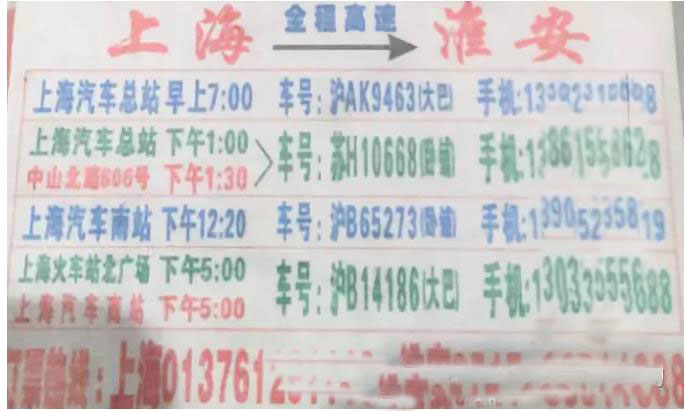 全程高速
上海 → 淮安
上海汽车总站 早上7:00 车号:沪AK9463(大巴) 手机:
上海汽车总站 下午1:00
中山北路606号 下午1:30
车号:苏H10668(卧铺) 手机:
上海汽车南站 下午12:20 车号:沪B65273(卧铺) 手机:
上海火车站北广场 下午5:00
上海汽车南站 下午5:00
车号:沪B14186(大巴) 手机:
热线:上海